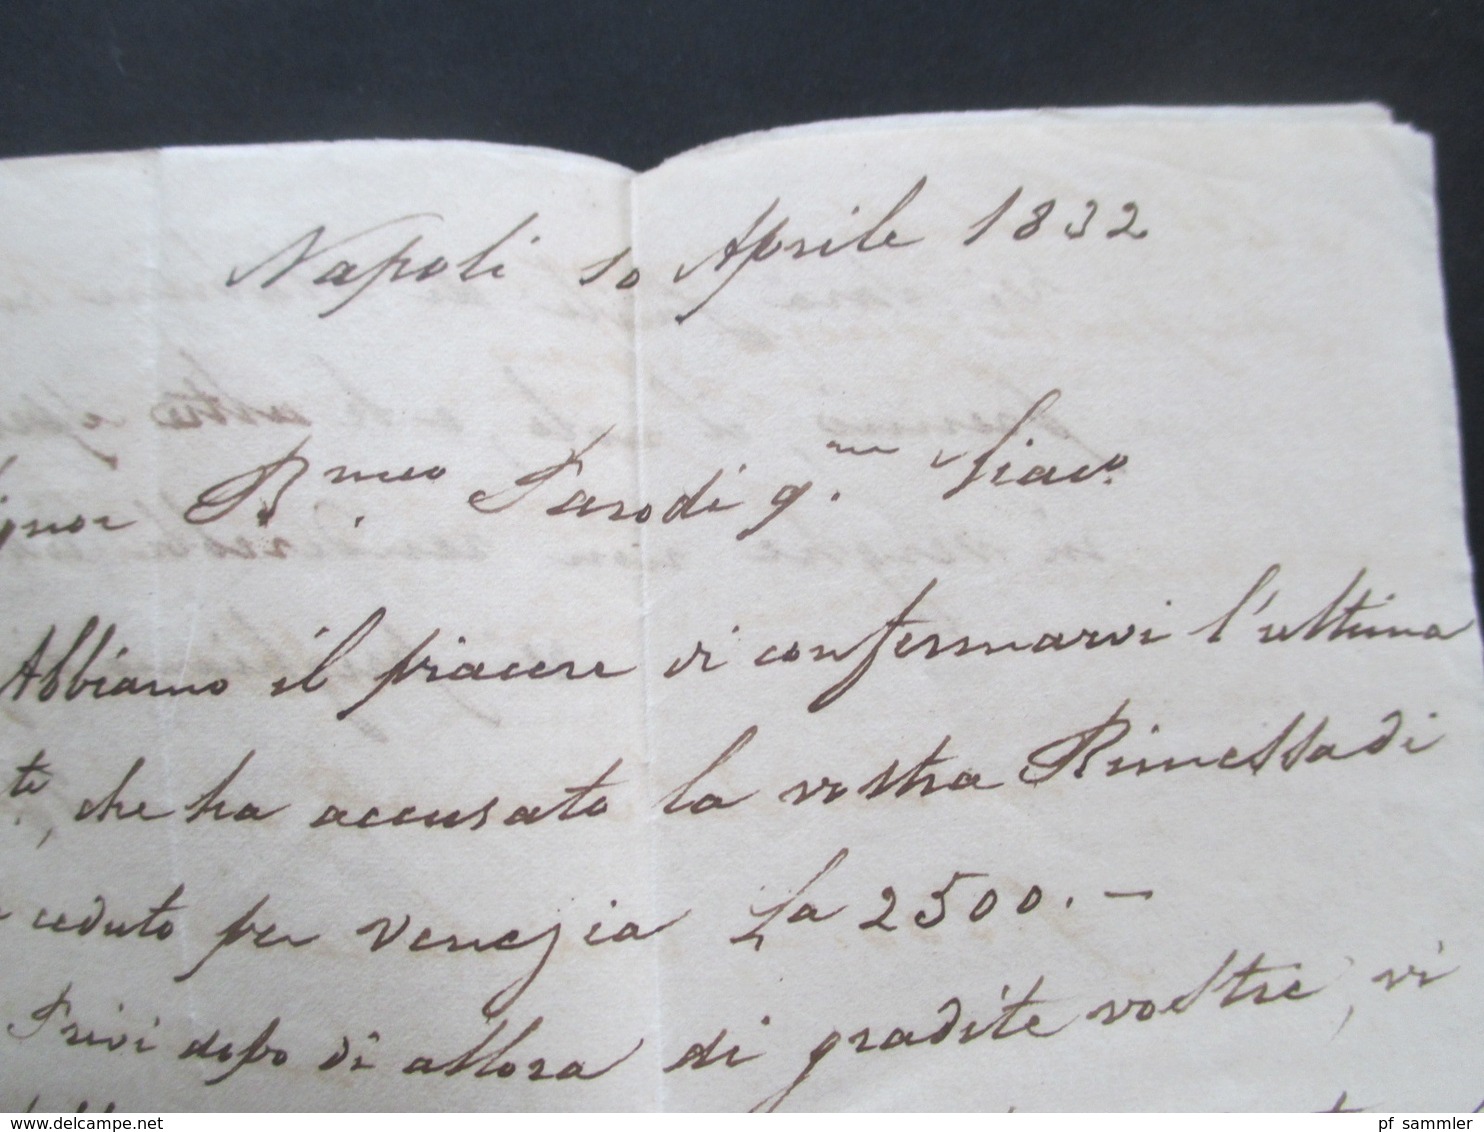 Napoli 10 Aprile 1832
ignor B.meo Parodi q.m Giac.o
Abbiamo il piacere di confermarvi l'ultima
te, che ha accusato la vostra Rimessa di
ceduto per Venezia La 2500.—
Privi dopo di allora di gradite vostre, vi
www.delcampe.net
pf_sammler